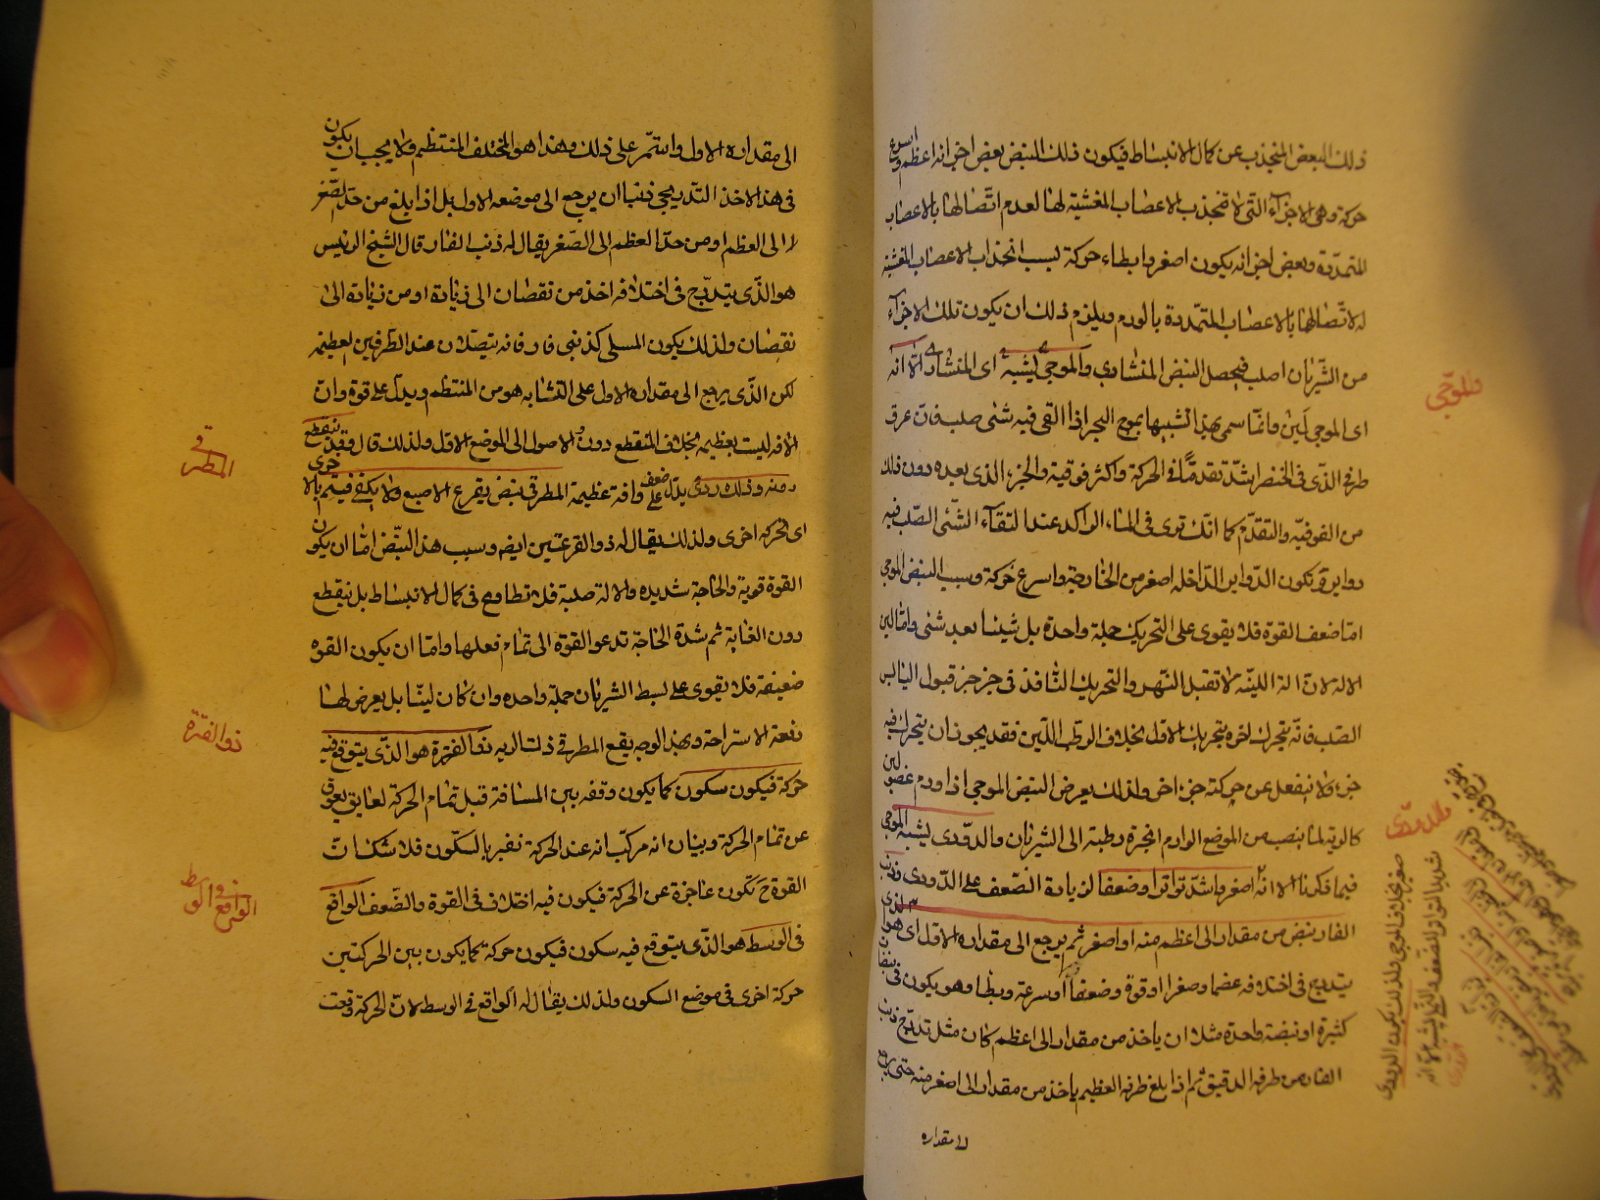 ذلك البعض المنجذب عن كمال الانبساط فيكون ذلك النبض بعض اجزائه اعظم واسرع
حركة وهى الاجزآء التى لا تنجذب الاعصاب المغشية لها لعدم اتّصالها بالاعصاب
المتمدّدة وبعض اجزائه يكون اصغر وابطاء حركة لسبب انجذاب الاعصاب المغشية
له لاتّصالها بالاعصاب المتمدّدة بالورم ويلزم ذلك ان يكون تلك الاجزآء
من الشّريان اصلب فيحصل النبض المنشارى والموجى يشبهه اى المنشارى الّا انه
اى الموجى لَين وانّما سمى بهذا لشبهها بموج البحر اذا القى فيه شئى صلب فانّ عرق
طرفى الذى فى الخنصر اشدّ تقدمًا فى الحركة واكثر فوقية والجزء الذى بعده دون ذلك
من الفوقيّه والتقدّم كما انّك ترى فى الماء الراكد عند التقآء الشئى الصّلب فيه
دواير ويكون الدّواير الدّاخله اصغر من الخارجة واسرع حركة وسبب النبض الموجى
امّا ضعف القوة فلا يقوى على التحريك جملة واحدة بل شيئا بعد شئى وامّا لين
الاله لانّ الة اللينّه لا تقبل الهز والتحريك النّافذ فى جزء جزء قبول اليابس
الصّلب فانّه يتحرك اخره بتحريك الاول بخلاف الرطب اللّين فقد يجوز ان يتحرك فيه
جزء ولا ينفعل عن حركته جزء اخر ولذلك يعرض النبض الموجى اذا ورم عضو لين
كالرية لما ينصب من الموضع الوارم ابخرة رطبة الى الشريان والدّودى يشبه الموجى
فيما ذكرنا الا انّه اصغر واشدّ تواترا وضعفا لزيادة الضّعف على الدّودى وذنب
الفار ينبض من مقدار الى اعظم منه او اصغر ثم يرجع الى مقداره الاول اى هو الذى
يتدرج فى اختلافه عظما وصغرا او قوة وضعفاً او سرعة وبطأ وهو يكون فى نبضات
كثيرة او نبضة واحدة مثلا ان ياخذ من مقدار الى اعظم كان مثل تدرّج ذنب
الفار من طرفه الدقيق ثم اذا بلغ طرفه العظيم ياخذ من مقدار الى اصغر منه حتى يرجع
لا مقداره
والموجّى
والدّودى
الى مقداره الاول واستمّر على ذلك وهذا هو المختلف المنتظم ولا يجب ان يكون
فى هذا الاخذ التدريجى ذنبا ان يرجع الى موضعه الاول بل اذا بلغ من حدّ الصّغر
الى العظم او من حدّ العظم الى الصّغر يقال له ذنب الفار قال الشيخ الرئيس
هو الذّى يتدرّج فى اختلافه اخذ من نقصان الى زيادة او من زيادة الى
نقصان ولذلك يكون المسلى كذنبى فار فانه يتصلان عند الطرفين لعظيمه
لكن الذّى يرجع الى مقداره الاول على التشابه هو من المنتظم ويدلّ على قوة وانّ
الافه ليست بعظيمه بخلاف المنقطع دون الاصول الى الموضع الاول ولذلك قال وقد ينقطع
دونه وذلك ردى يدلّ على ضعف وافة عظيمة المطرقى نبض يقرع الاصبع ولا يكفى فيتم بالاخرى
اى الحركه اخرى ولذلك يقال له ذو القرعتين ايضه وسبب هذا النبّض امّا ان يكون
القوة قوية والحاجة شديده والالة صلبة فلا تطاوع فى كمال الانبساط بل ينقطع
دون الغاية ثم شدة الحاجة تدعو القوة الى تمام فعلها واما ان يكون القوه
ضعيفة فلا يقوى على لبسط الشريان جملة واحده وان كان لينّا بل يعرض لها
دفعة الاستراحة وبهذا الوجه يقع المطرقى ذو الفترة هو الذّى يتوقع فيه
حركة فيكون سكون كما يكون وقفه بين المسافة قبل تمام الحركة لعايق يعوق
عن تمام الحركة وبيان انه مركب انه عند الحركة نفير بالسكّون فلا شك انّ
القوة ح تكون عاجزة عن الحركة فيكون فيه اختلاف فى القوة والضّعف الواقع
فى الوسط هو الذّى يتوقع فيه سكون فيكون حركة كما يكون بين الحركتين
حركة اخرى فى موضع السكون ولذلك يقال له الواقع فى الوسط لانّ الحركة وقعت
المطرقى
ذو الفترة
الواقع فى الوسط